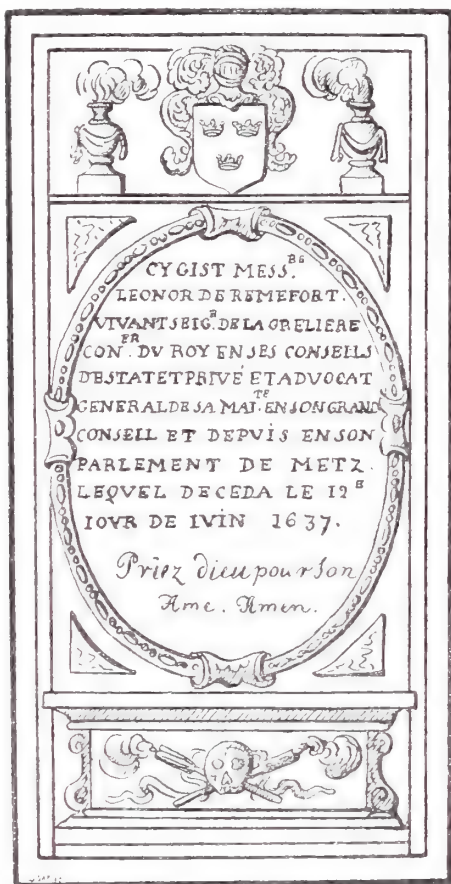 CY GIST MESS.RE
LEONOR DE REMEFORT.
VIVANT SEIG.R DE LA GRELIERE
CON.ER DV ROY EN SES CONSEILS
D'ESTAT ET PRIVÉ ET ADVOCAT
GENERAL DE SA MAI.TE EN SON GRAND
CONSEIL ET DEPVIS EN SON
PARLEMENT DE METZ.
LEQVEL DECEDA LE 12E
IOVR DE IVIN 1637.
Priez dieu pour son
Ame. Amen.